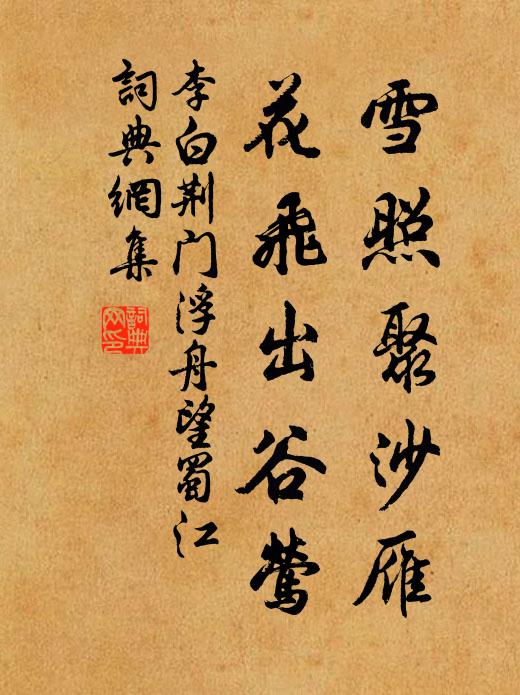 雪照聚沙雁
花飛出谷鶯
李白荆门浮舟望蜀江
詞典網集
詞典网印